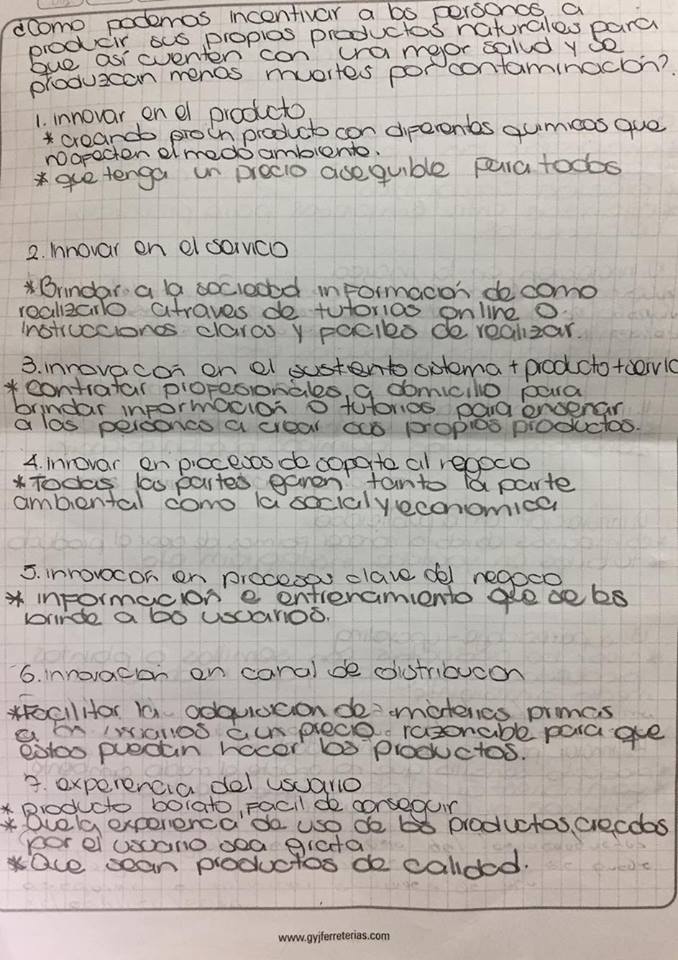 ¿Como podemos incentivar a las personas a
producir sus propios productos naturales para
que así cuenten con una mejor salud y se
produzcan menos muertes por contaminación?
1. innovar en el producto
* creando un producto con diferentes quimicos que
no afecten el medo ambiente.
* que tenga un precio asequible para todos
2. Innovar en el servico
* Brindar a la sociedad información de como
realizarlo atraves de tutorias online o
instrucciones claras y faciles de realizar.
3. innovacón en el sustento sistema + producto + servic
* contratar profesionales a domicilio para
brindar información o tutorias para enseñar
a las personas a crear sus propios productos.
4. innovar en procesos de soporte al negoco
* Todas las partes ganen tanto la parte
ambiental como la social y economica
5. innovocon en procesos clave del negoco
* información e entrenamiento que se les
brinde a los usuarios.
6. innovacion en canal de distribucon
* Facilitar la adquisicion de materias primas
a un precio razonable para que
estos puedan hacer los productos.
7. experiencia del usuario
* producto barato, facil de conseguir
* Que la experienca de uso de los productos creados
por el usuario sea grata
* Que sean productos de calidad.
www.gyjferreterias.com